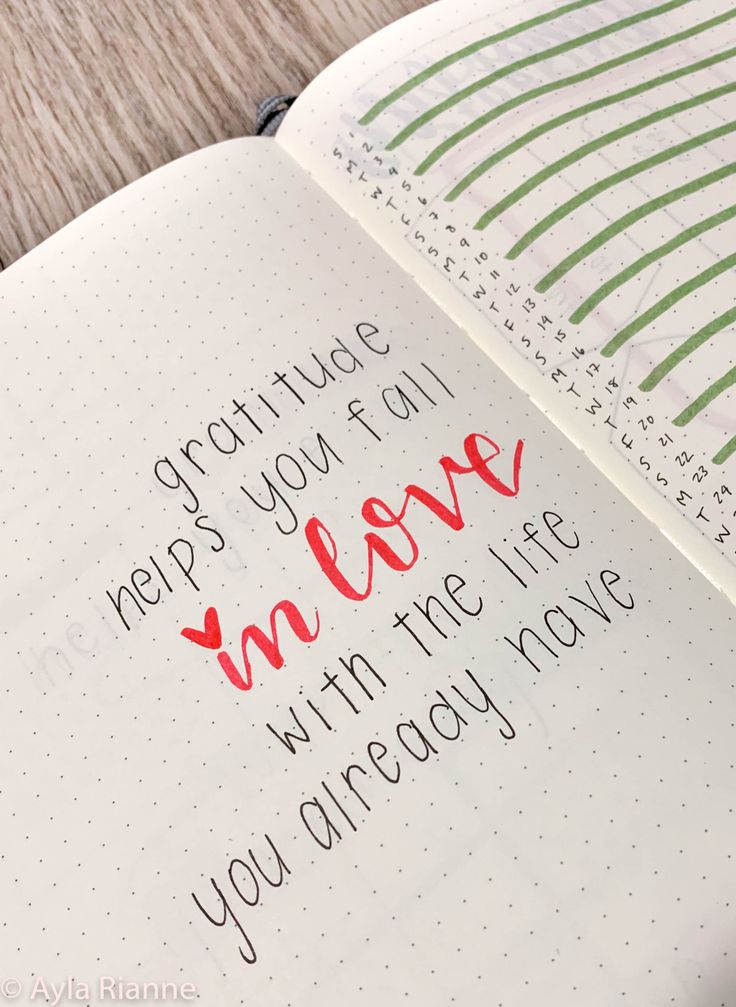 gratitude
helps you fall
in love
with the life
you already have
S 1
M 2
T 3
W 4
T 5
F 6
S 7
S 8
M 9
T 10
W 11
T 12
F 13
S 14
S 15
M 16
T 17
W 18
T 19
F 20
S 21
S 22
M 23
T 24
W
© Ayla Rianne